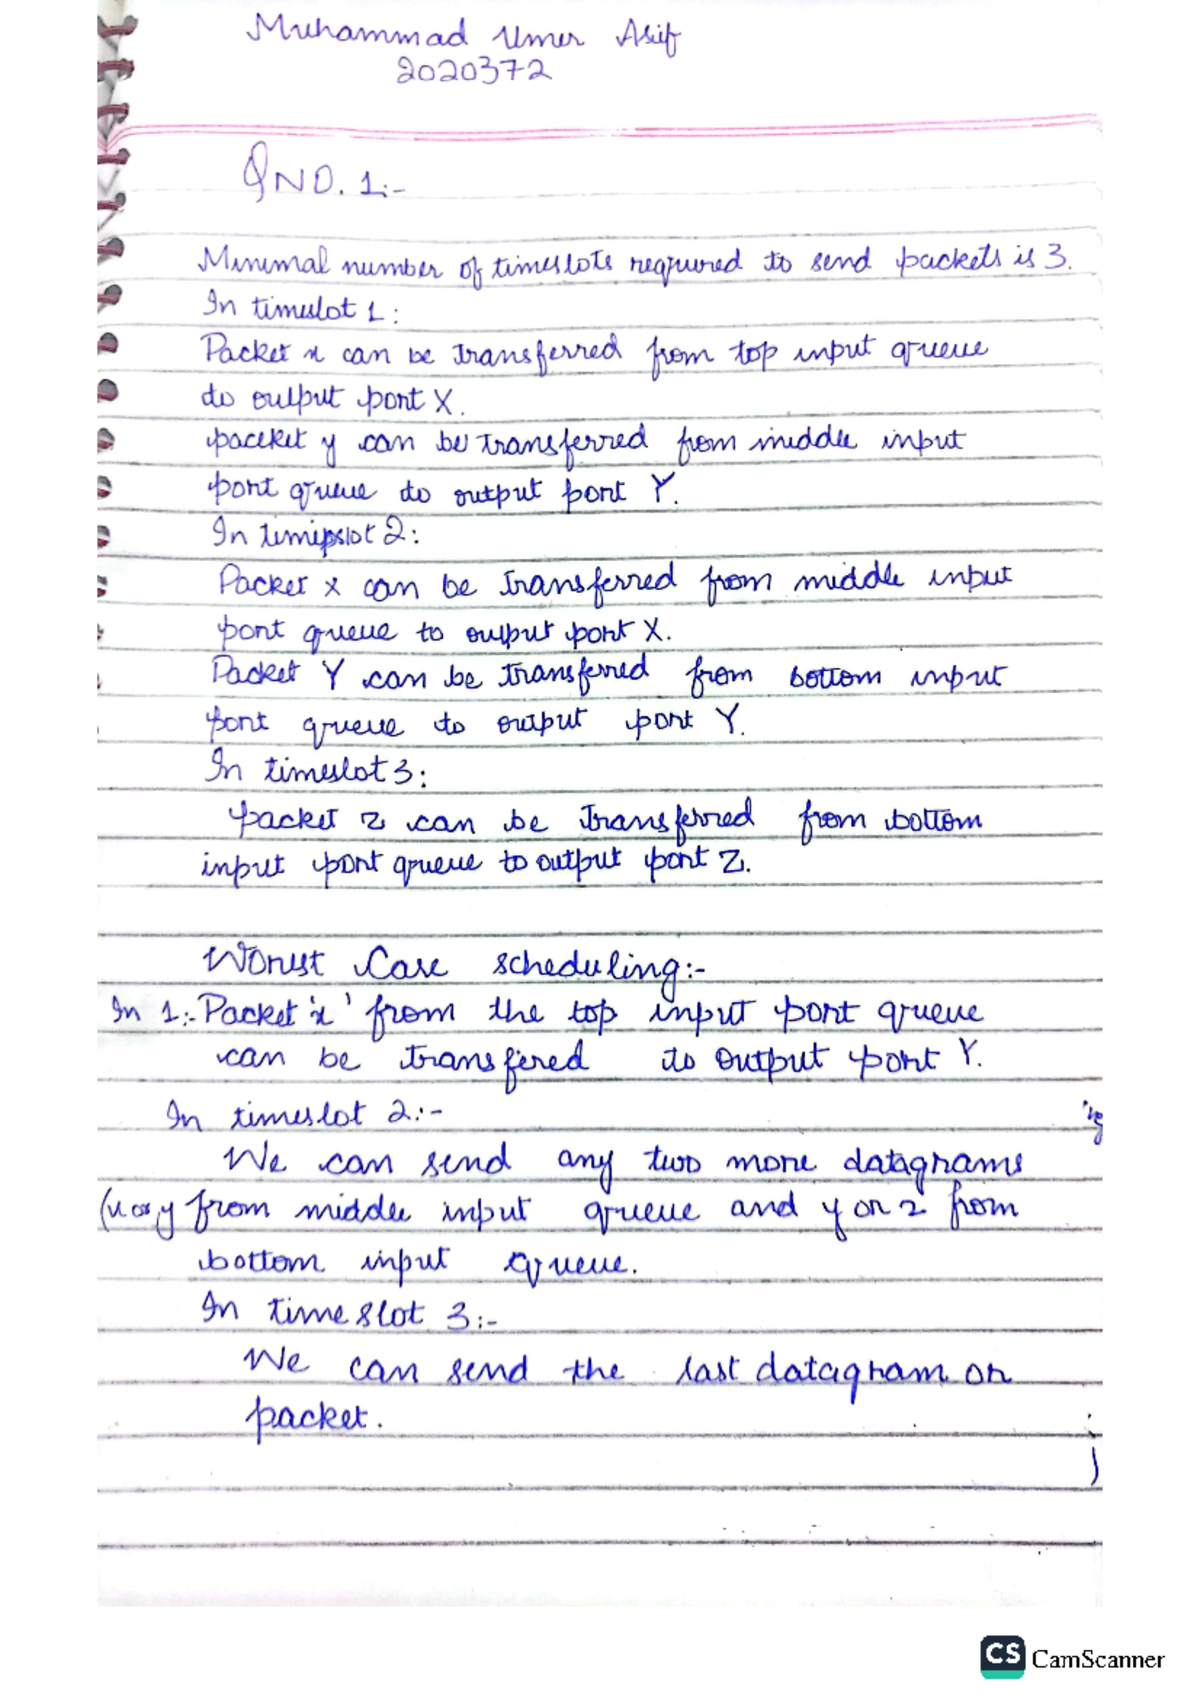 Muhammad Umer Asif
2020372
QNO. 1:-
Minimal number of timeslots required to send packets is 3.
In timeslot 1:
Packet x can be transferred from top input queue
to output port X.
packet y can be transferred from middle input
port queue to output port Y.
In timeslot 2:
Packet x can be transferred from middle input
port queue to output port X.
Packet Y can be transferred from bottom input
port queue to output port Y.
In timeslot 3:
packet z can be transferred from bottom
input port queue to output port Z.
Worst Case scheduling:-
In 1:- Packet 'x' from the top input port queue
can be transfered to output port Y.
In timeslot 2:-
We can send any two more datagrams
(x or y from middle input queue and y or z from
bottom input queue.
In time slot 3:-
We can send the last datagram or
packet.
CS CamScanner